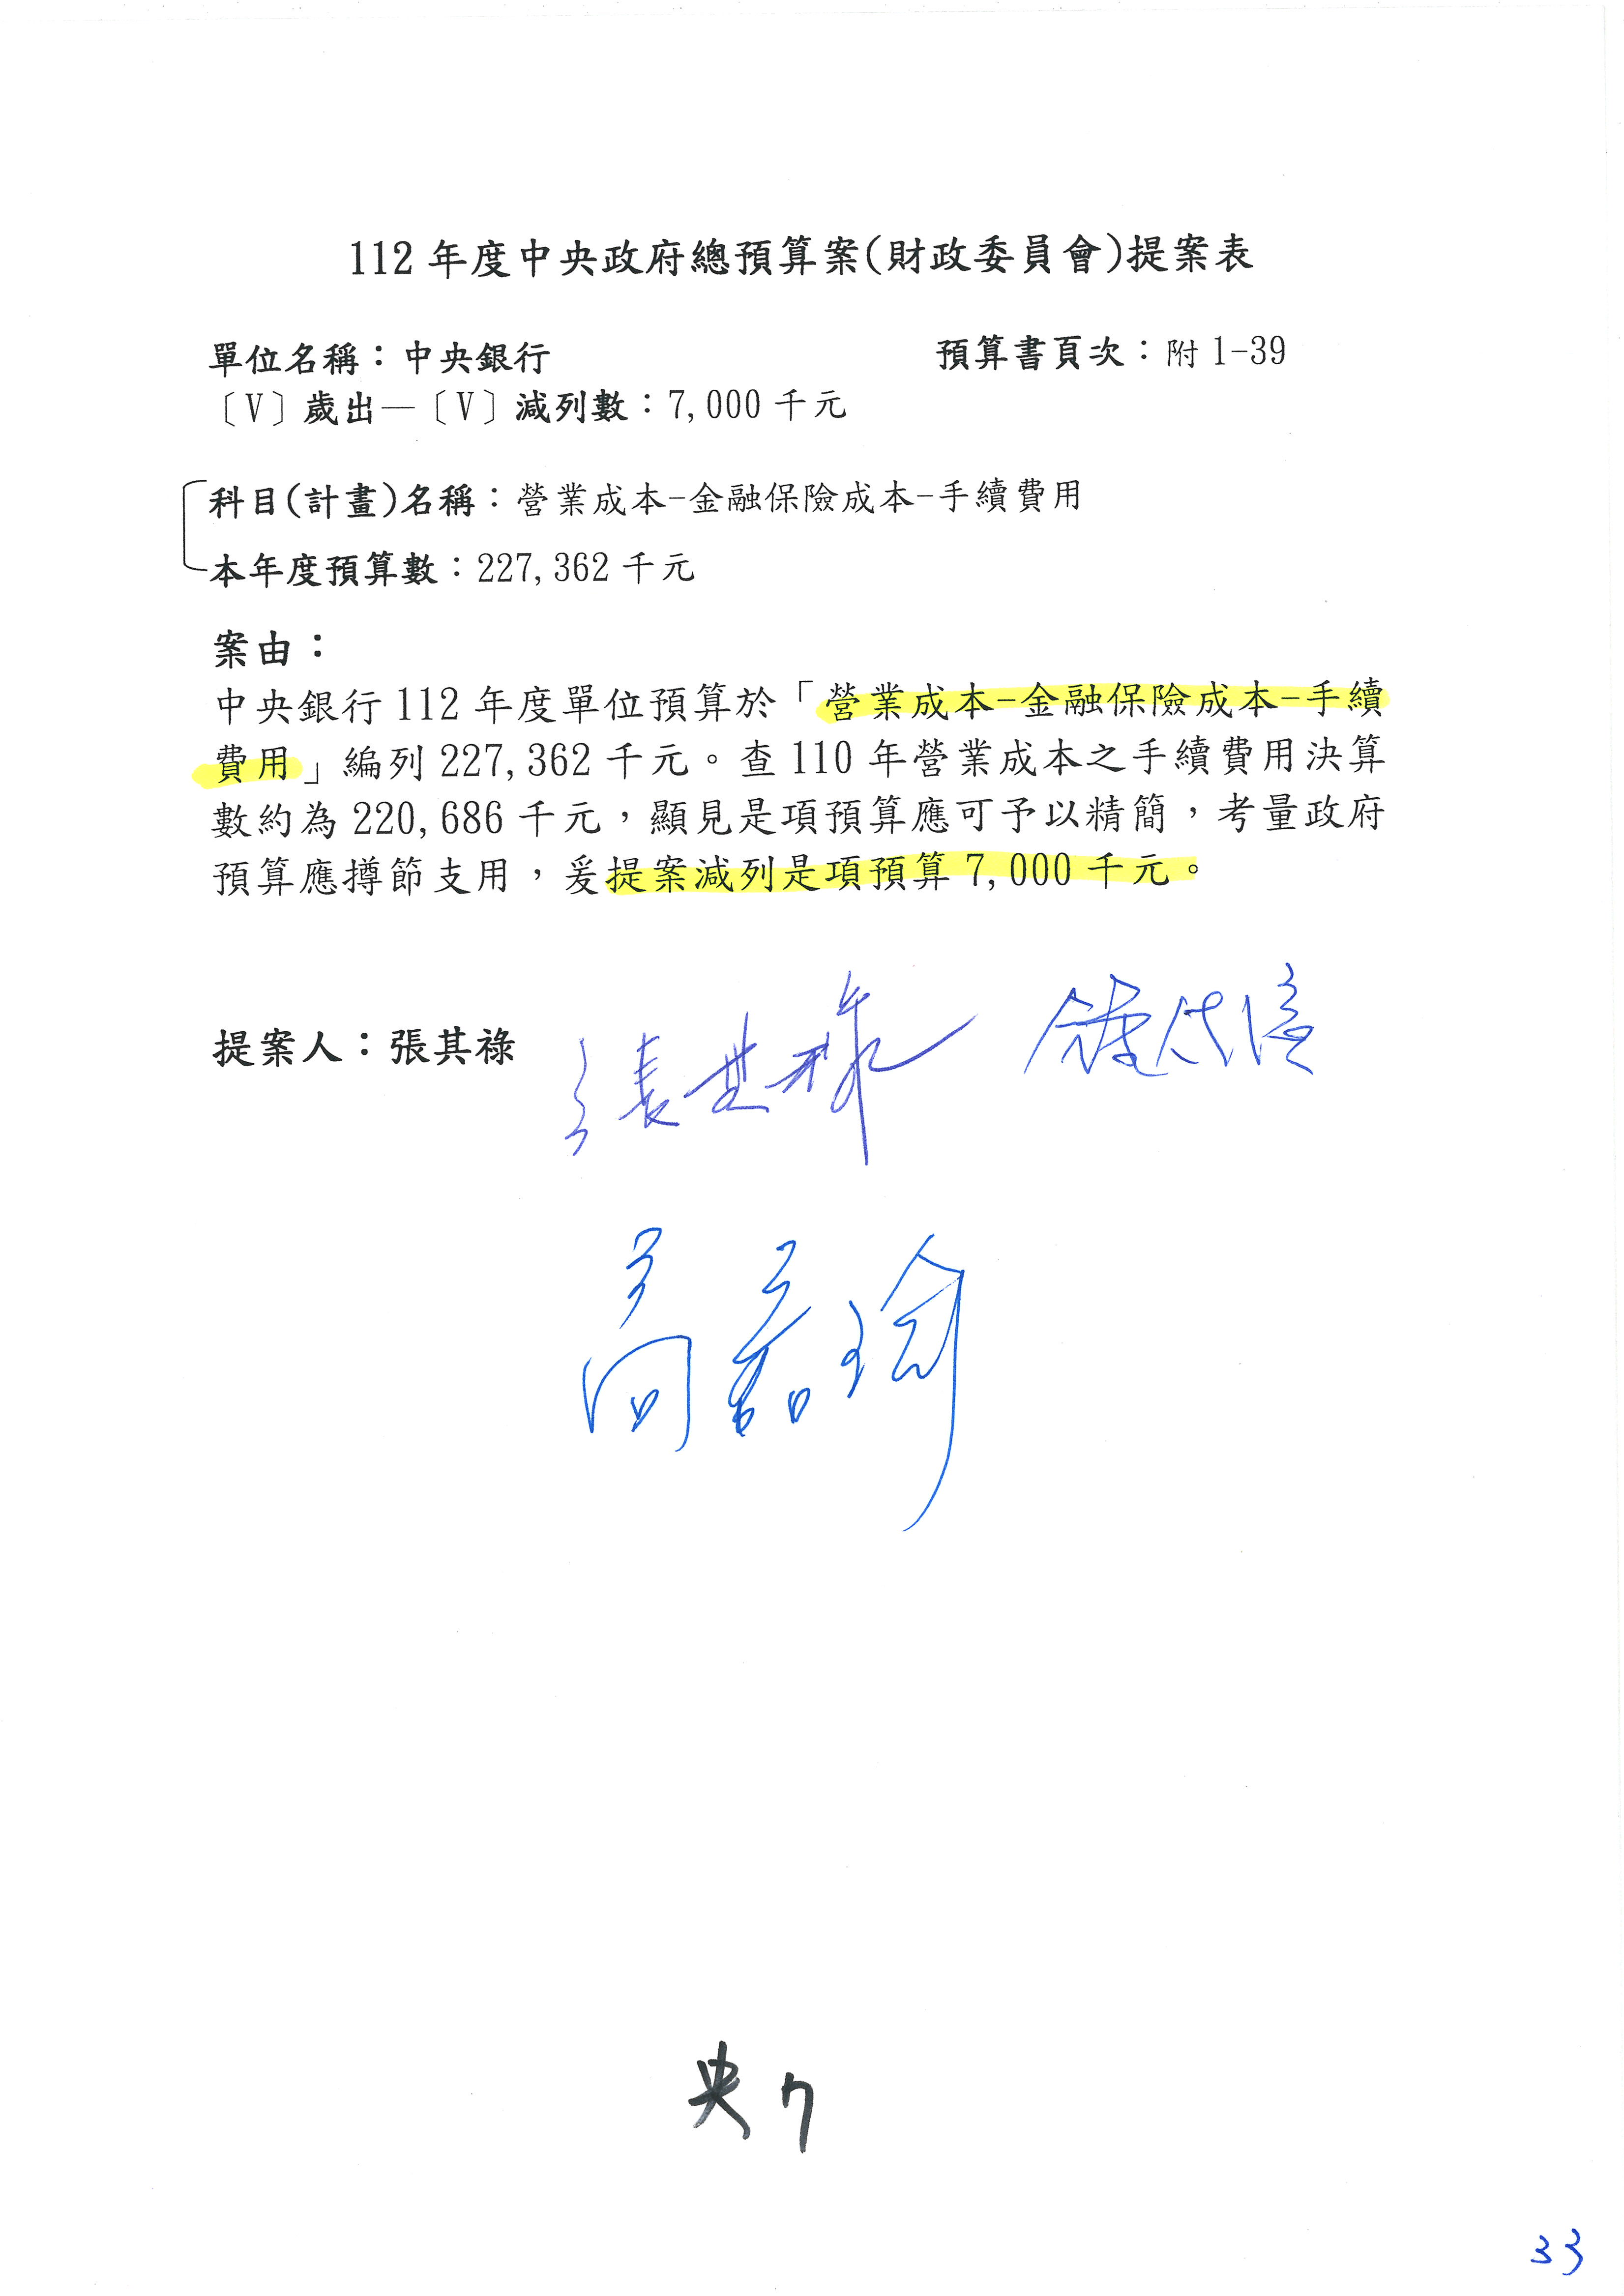 112 年度中央政府總預算案(財政委員會)提案表
單位名稱：中央銀行 預算書頁次：附 1-39
〔V〕歲出—〔V〕減列數：7,000 千元
科目(計畫)名稱：營業成本-金融保險成本-手續費用
本年度預算數：227,362 千元
案由：
中央銀行 112 年度單位預算於「營業成本-金融保險成本-手續
費用」編列 227,362 千元。查 110 年營業成本之手續費用決算
數約為 220,686 千元，顯見是項預算應可予以精簡，考量政府
預算應撙節支用，爰提案減列是項預算 7,000 千元。
提案人：張其祿 張其祿 鍾佳濱
高嘉瑜
央 7
33